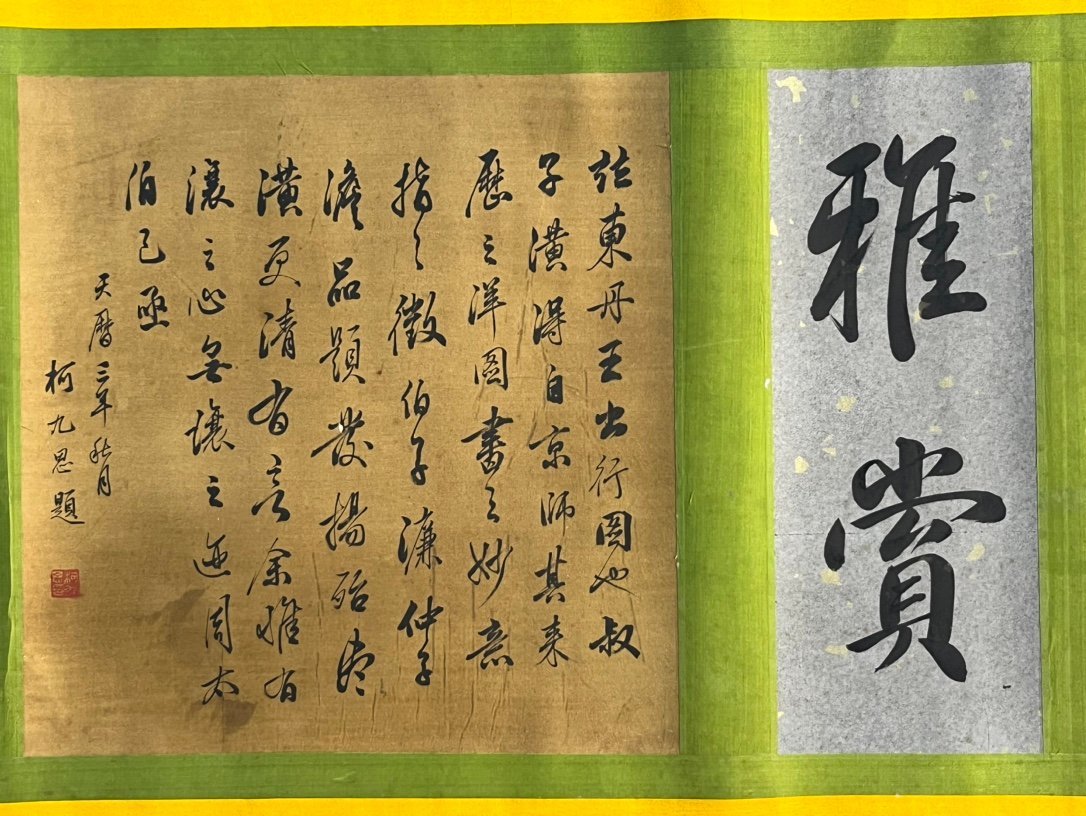 雅賞
東丹王出行圖也叔
子潢得自京師其来
歷之洋圖書之妙意
指之徵伯子濂仲子
澹品題發揚殆盡
潢更清有言余惟有
瀼之心無壤之迹周太
伯已亟
天曆三年秋月
柯九思題